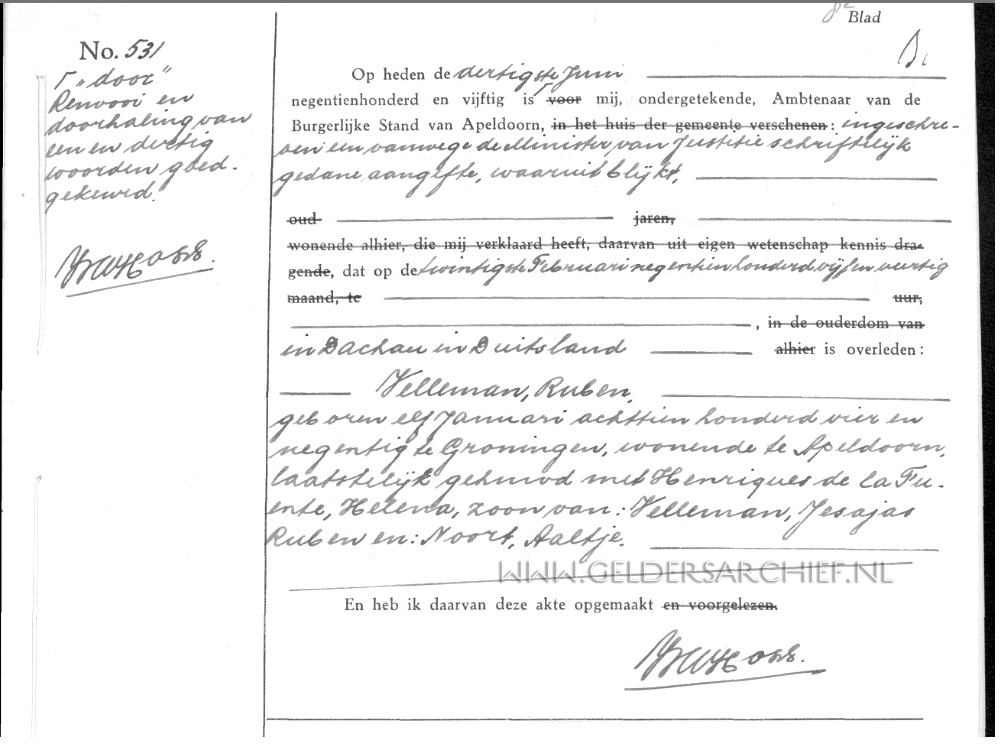 8e Blad
No. 531
Γ „door"
Renvooi en
doorhaling van
een en dertig
woorden goed-
gekeurd.
Op heden de dertigste Juni
negentienhonderd en vijftig is Γ voor mij, ondergetekende, Ambtenaar van de
Burgerlijke Stand van Apeldoorn, in het huis der gemeente verschenen: ingeschre-
ven een vanwege de Minister van Justitie schriftelijk
gedane aangifte, waaruit blijkt,
oud jaren,
wonende alhier, die mij verklaard heeft, daarvan uit eigen wetenschap kennis dra-
gende, dat op de twintigste Februari negentienhonderd vijf en veertig
maand, te uur,
, in de ouderdom van
in Dachau in Duitsland alhier is overleden:
Velleman, Ruben,
geboren elf Januari achttienhonderd vier en
negentig te Groningen, wonende te Apeldoorn,
laatstelijk gehuwd met Henriques de la Fu-
ente, Helena, zoon van: Velleman, Jesajas
Ruben en: Noort, Aaltje.
WWW.GELDERSARCHIEF.NL
En heb ik daarvan deze akte opgemaakt en voorgelezen.